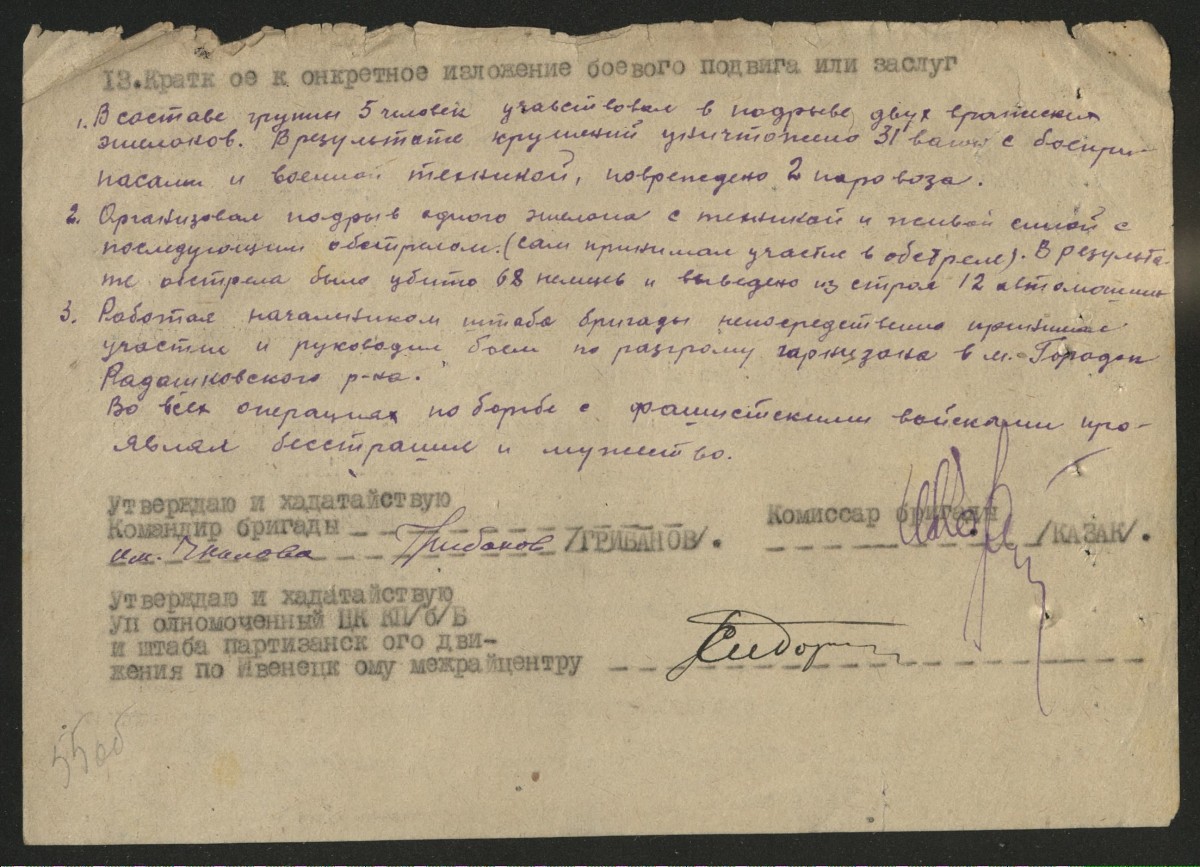 13.Кратк ое к онкретное изложение боевого подвига или заслуг
1. В составе групы 5 человек учавствовал в подрыве двух вражеских
эшелонов. В результате крушений уничтожено 31 вагон с боепри-
пасами и военной техникой, повреждено 2 паровоза.
2. Организовал подрыв одного эшелона с техникой и живой силой с
последующим обстрелом. (сам принимал участие в обстреле). В результа-
те обстрела было убито 68 немцев и выведено из строя 12 автомашин
3. Работая начальником штаба бригады непосредственно принимал
участие и руководил боем по разгрому гарнизона в м. Городок
Радашковского р-на.
Во всех операциях по борьбе с фашистскими войсками про-
являл бесстрашие и мужество.
Утверждаю и хадатайствую
Командир бригады
им. Чкалова Грибанов /ГРИБАНОВ/.
Комиссар бригады
/КАЗАК/.
Утверждаю и хадатайствую
Уп олномоченный ЦК КП/б/Б
и штаба партизанск ого дви-
жения по Ивенецк ому межрайцентру
55об